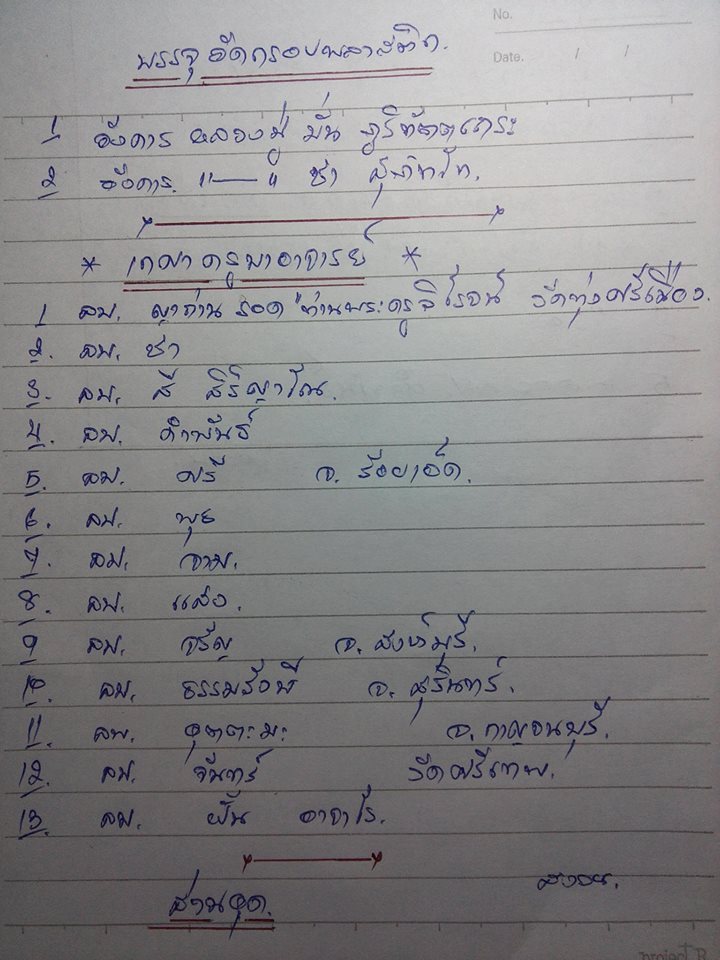 No.
Date. / /
บรรจุอัดกรอบพลาสติก.
1 อังคาร หลวงปู่ มั่น ภูริทัตตเถระ
2 อังคาร. "—— " ชา สุภัทโท.
* เกศาครูบาอาจารย์ *
1 ลป. ญาถ่าน รอด "ท่านพระครูวิโรจน์ วัดทุ่งศรีเมือง.
2. ลป. ชา
3. ลป. สี สิริญาโณ.
4. ลป. คำพันธ์
5. ลป. ศรี จ. ร้อยเอ็ด.
6. ลป. พุธ
7. ลป. จาม.
8. ลป. แสง.
9 ลป. จรัญ จ. สิงห์บุรี.
10. ลป. ธรรมรังษี จ. สุรินทร์.
11. ลพ. อุตตะมะ จ. กาญจนบุรี.
12. ลป. จันทร์ วัดศรีเทพ.
13. ลป. ฝั้น อาจาโร.
project